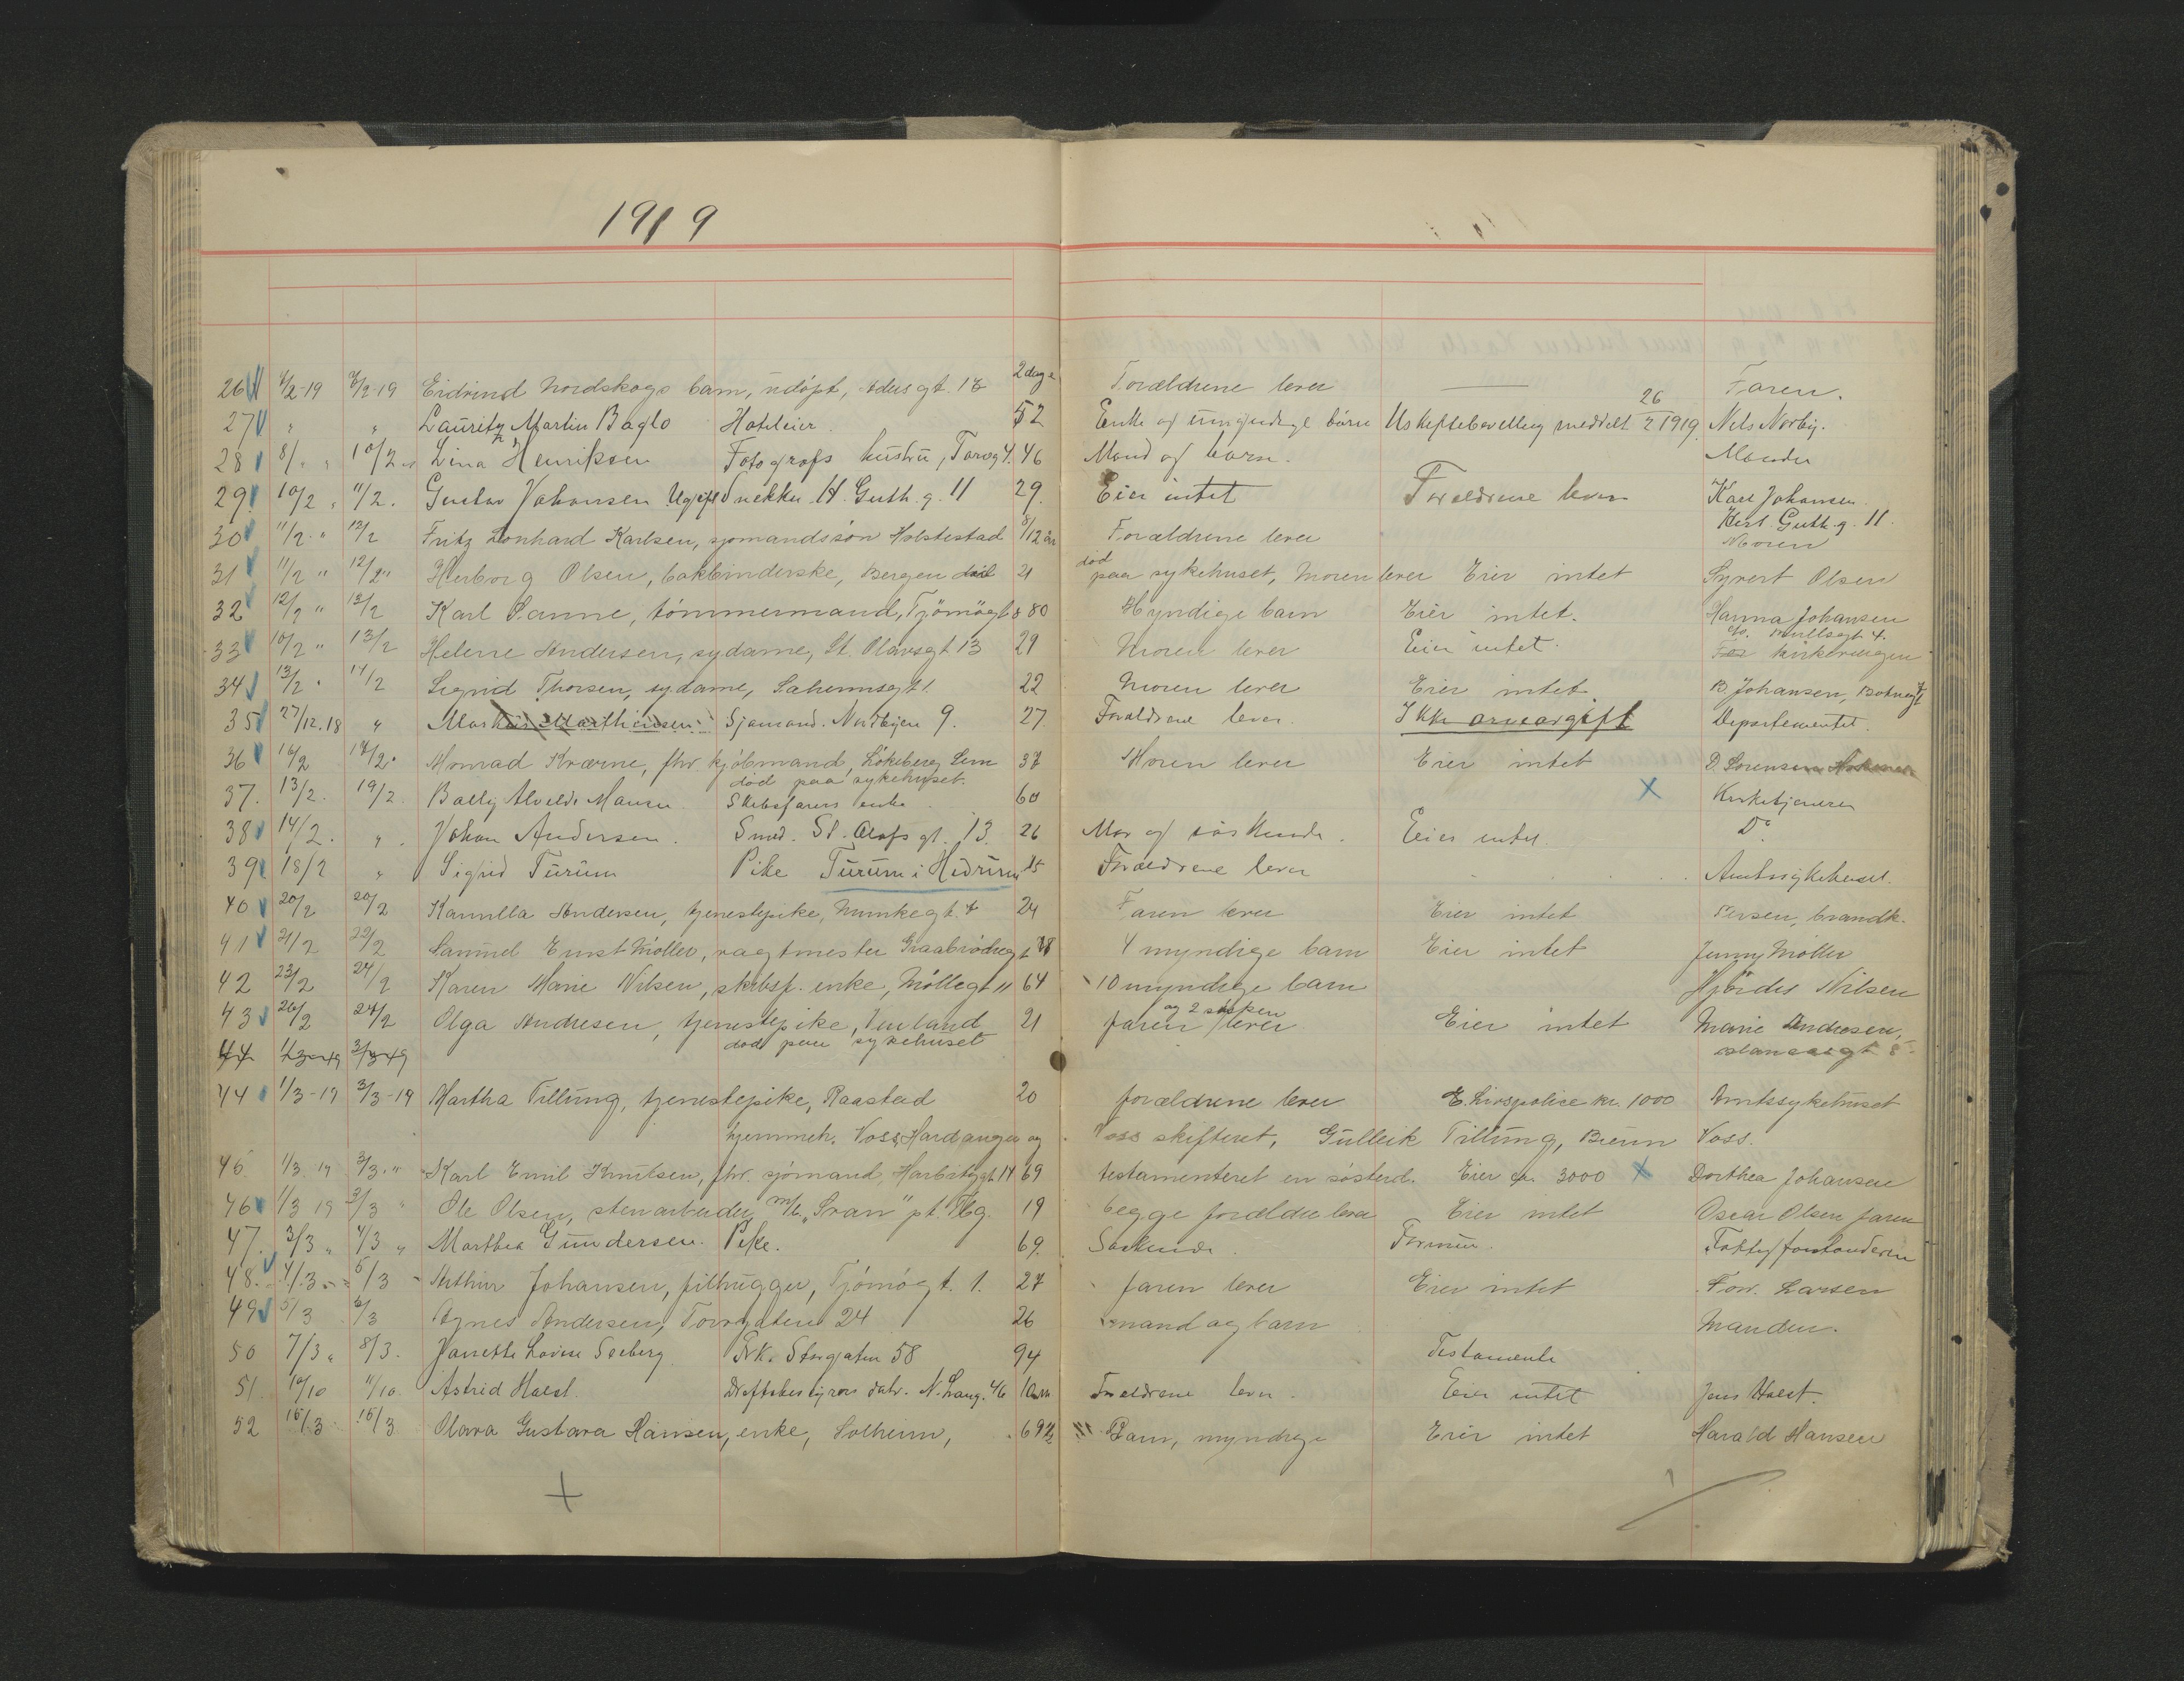 1919
26 4/2-19 7/2-19 Eidrind Nordskogs barn, udöpt, gt. 18 2 dage Forældrene lever — Faren.
27 " " Lauritz Martin Baglo Hoteleier. 52 Enke og umyndige börn Uskiftebevilling meddelt 26/2 1919. Nils Norby.
28 8/ " " 10/2 " Lina Henriksen Fotografs hustru, Torvg 4. 46 Mand og barn. Manden
29 10/2 " 11/2. Gustav Johansen Ugift Snekker H. Guth. g. 11 29. Eier intet Forældrene lever Karl Johansen
Herl. Guth. g. 11.
30 11/2 " 12/2 Fritz Leonhard Karlsen, sjømandssön Holstestad 8/12 år Forældrene lever Moren
31 11/2 " 12/2 " Herborg Olsen, bokbinderske, Bergen död 21 död paa sykehuset, Moren lever Eier intet Syvert Olsen
32 12/2 " 13/2 Karl Sanne, tömmermand, Tjömögt 8 80 Myndige barn Eier intet. Hanna Johansen
33 10/2 " 13/2 Helene Andersen, sydame, St. Olavsgt 13 29 Moren lever Eier intet. Kirkevergen
34 13/2 " 14/2 Sigrid Thorsen, sydame, 22 Moren lever Eier intet. B. Johansen,
35 27/12.18 " Markus Mathiesen Sjømand. Nordbyen 9. 27. Forældrene lever. Ikke arveavgift Departementet.
36 16/2 17/2 " Monrad Kværne, fhv. kjöbmand, Lökeberg Sem 37 Moren lever Eier intet D. Sorensen
död paa sykehuset.
37. 13/2. 19/2. Bally Alvilde Skibsførers enke. 60 X Kirketjeneren
38 14/2. " Johan Andersen. Smed. St. Olafs gt. 13. 26 Mor og söskende. Eier intet. Do
39 18/2 " Sigrid Turum Pike Turum i Hedrum 15 Forældrene lever Amtssykehuset.
40 20/2 20/2 Kamilla Andersen, tjenestepike, Munkegt. 7 24 Faren lever Eier intet Iversen, brandk.
41 21/2 22/2 Samuel Ernst Möller, vagtmester Graabrödregt 78 4 myndige barn Eier intet Jenny Möller
42 23/2 24/2 Karen Marie Nilsen, skibsf. enke, Möllegt 11 64 10 myndige barn Hjördis Nilsen
43 26/2 27/2 Olga Andresen, tjenestepike, Venland 21 faren og 2 sösken lever Eier intet Marie Andresen,
död paa sykehuset
44 1/3-19 3/3-19
44 1/3-19 3/3-19 Martha Tillung, tjenestepike, Raastad 20 forældrene lever E. Livspolice kr. 1000 Amtssykehuset
hjemmeh. Voss, Hardanger og Voss skifteret, Gulleik Tillung, Voss.
45 1/3 19 3/3 " Karl Emil Knutsen, fhv. sjömand, 14 69 testamenteret en sösterd. Eier ca. 3000 X Dorthea Johansen
46 1/3 19 3/3 " Ole Olsen, stenarbeider, m/b. "Svan" pt. Tbg. 19 begge forældre lever Eier intet Oscar Olsen faren
47. 3/3 " 4/3 " Marthea Gundersen. Pike. 69. Söskende. Formue. forstanderen
48. 4/3 " " 5/3 " Arthur Johansen, filhugger, Tjömögt. 1. 27 faren lever Eier intet Forv. Larsen
49 5/3 6/3 Agnes Andersen, Torvgaten 24 26 mand og barn Manden.
50 7/3 " 8/3. Janette Lovise Seeberg Frk. Storgaten 58 94 Testamente
51. 10/10 11/10. Astrid Holst. Driftsbestyrers datr. N. Lang. 46 Forældrene lever. Eier intet Jens Holst.
52 15/3 15/3 Olava Gustava Hansen, enke, Solheim, 69 1/2 Barn, myndige Eier intet Harald Hansen